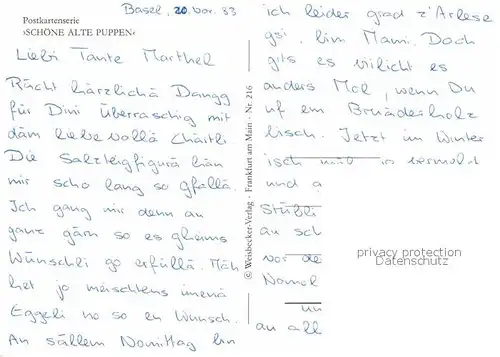 Postkartenserie
›SCHÖNE ALTE PUPPEN‹
Basel, 20. Nov. 83
Liebi Tante Marthel
Rächt härzlichä Dangg
für Dini Überraschig mit
däm liebevollä Chärtli.
Die Salzteigfigurä hän
mir scho lang so gfallä.
Ich gang mir denn au
ganz gärn so es gheims
Wünschli go erfüllä. Mäh
het jo meischtens imenä
Eggeli no so en Wunsch.
An sällem Nomittag bin
© Weisbecker-Verlag · Frankfurt am Main · Nr. 216
ich leider grad z'Arlese
gsi, bim Mami. Doch
gits es vilicht es
anders Mol, wenn Du
uf em Bruederholz
bisch. Jetzt im Winter
isch
und
Stübli
an sch
vor de
Nomol
un
an all
privacy protection
Datenschutz